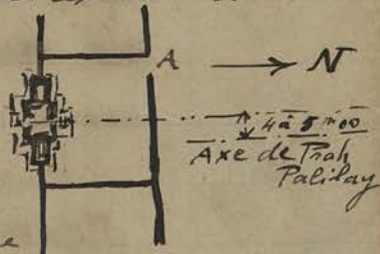 A → N
4 à 5 m 00
Axe de Prah
Palilay